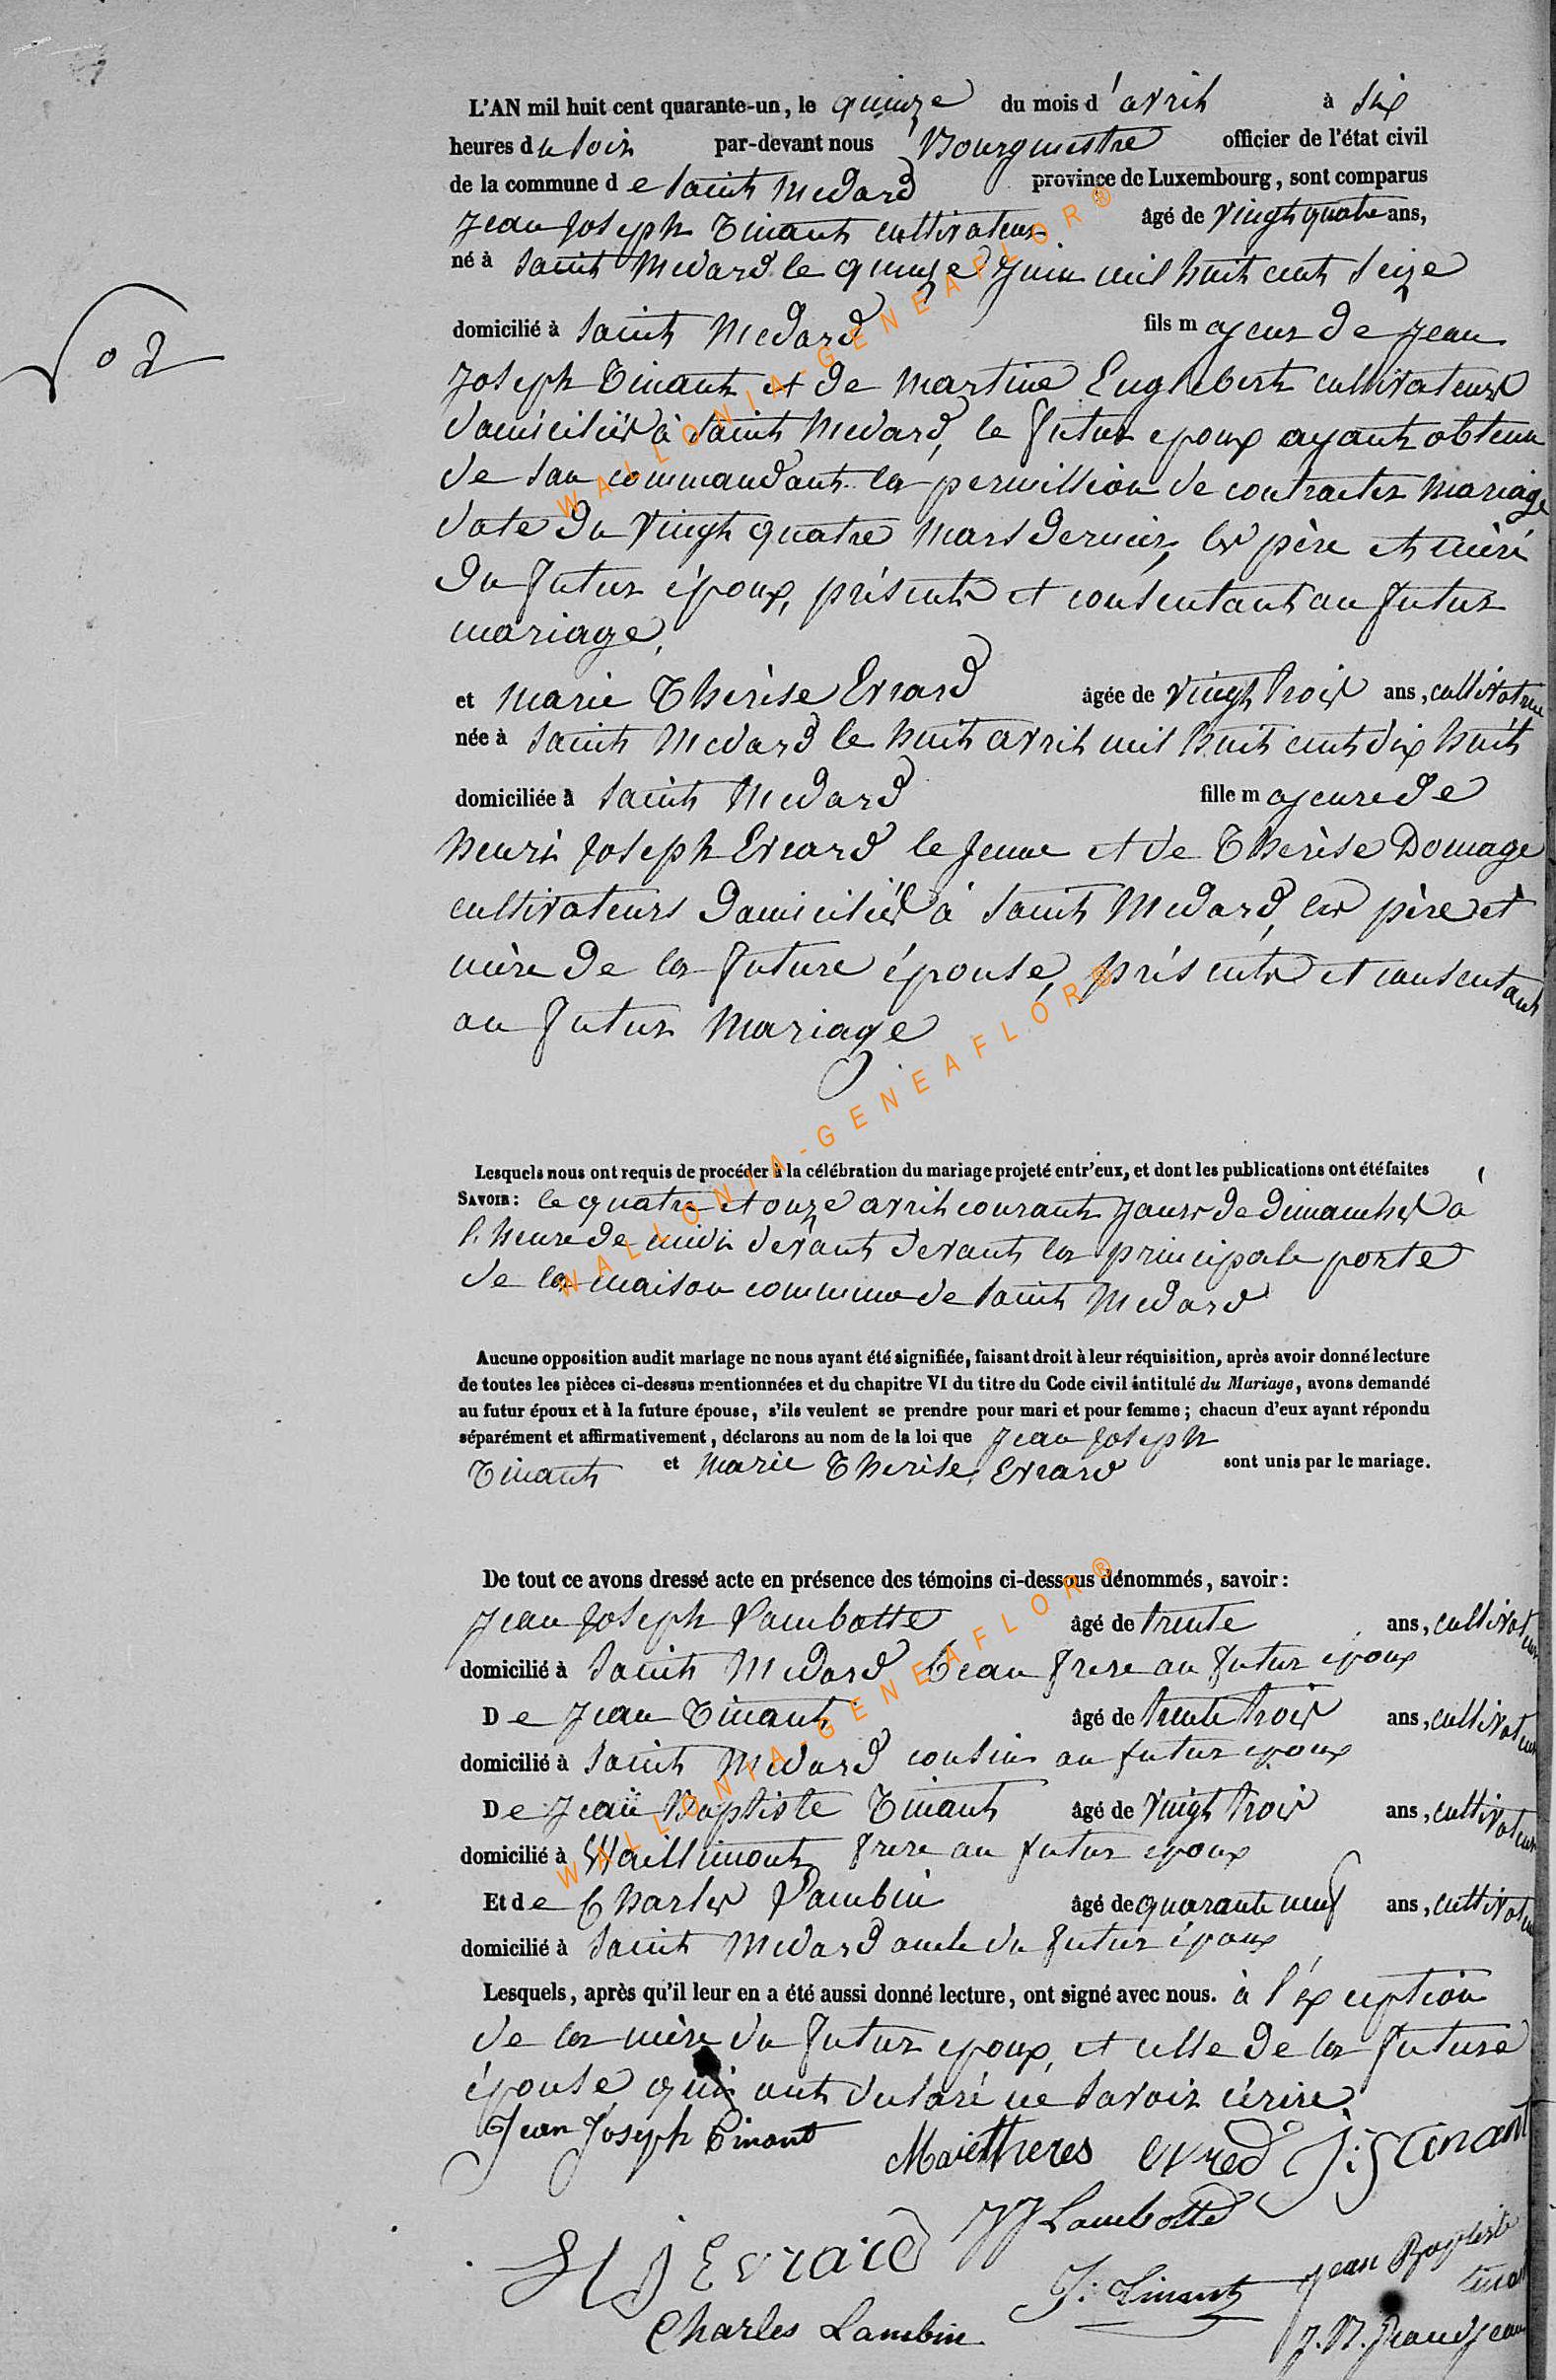 L'AN mil huit cent quarante-un, le quinze du mois d'avril à six
heures du soir par-devant nous Bourgmestre officier de l'état civil
de la commune de Saint Medard province de Luxembourg, sont comparus
Jean Joseph Tinant cultivateur âgé de vingt quatre ans,
né à Saint Medard le quinze Juin mil huit cent seize
domicilié à Saint Medard fils majeur de Jean
No 2
Joseph Tinant et de Martine Englebert cultivateurs
domiciliés à Saint Medard, le futur epoux ayant obtenu
de son commandant la permission de contracter mariage
date du vingt quatre mars dernier, les père et mère
du futur époux, présents et consentant au futur
mariage,
et Marie Thérèse Evrard âgée de vingt trois ans, cultivatrice
née à Saint Medard le huit avril mil huit cent dix huit
domiciliée à Saint Medard fille majeure de
henri Joseph Evrard le jeune et de Thérèse Domage
cultivateurs domiciliés à Saint Medard, les père et
mère de la future épouse, présents et consentant
au futur mariage
Lesquels nous ont requis de procéder à la célébration du mariage projeté entr'eux, et dont les publications ont été faites
SAVOIR: le quatre et onze avril courant jours de dimanches à
l'heure de midi devant devant la principale porte
de la maison commune de Saint Medard
Aucune opposition audit mariage ne nous ayant été signifiée, faisant droit à leur réquisition, après avoir donné lecture
de toutes les pièces ci-dessus mentionnées et du chapitre VI du titre du Code civil intitulé du Mariage, avons demandé
au futur époux et à la future épouse, s'ils veulent se prendre pour mari et pour femme; chacun d'eux ayant répondu
séparément et affirmativement, déclarons au nom de la loi que Jean Joseph
Tinant et Marie Thérèse Evrard sont unis par le mariage.
De tout ce avons dressé acte en présence des témoins ci-dessous dénommés, savoir:
Jean Joseph Lambotte âgé de trente ans, cultivateur
domicilié à Saint Medard beau frere au futur époux
De Jean Tinant âgé de trente trois ans, cultivateur
domicilié à Saint Medard cousin au futur epoux
De Jean Baptiste Tinant âgé de vingt trois ans, cultivateur
domicilié à Waillimont frere au futur epoux
Et de Charles Lambin âgé de quarante neuf ans, cultivateur
domicilié à Saint Medard oncle du futur époux
Lesquels, après qu'il leur en a été aussi donné lecture, ont signé avec nous. à l'exception
de la mère du futur epoux, et celle de la future
épouse, qui ont declaré ne savoir écrire.
Jean Joseph Tinant Marietheres evred J:J Tinant
JJ Lambotte
H J Evrard J: Tinant Jean Baptiste
tinant
Charles Lambin J.N. Grandjean
WALLONIA-GENEAFLOR®
WALLONIA-GENEAFLOR®
WALLONIA-GENEAFLOR®